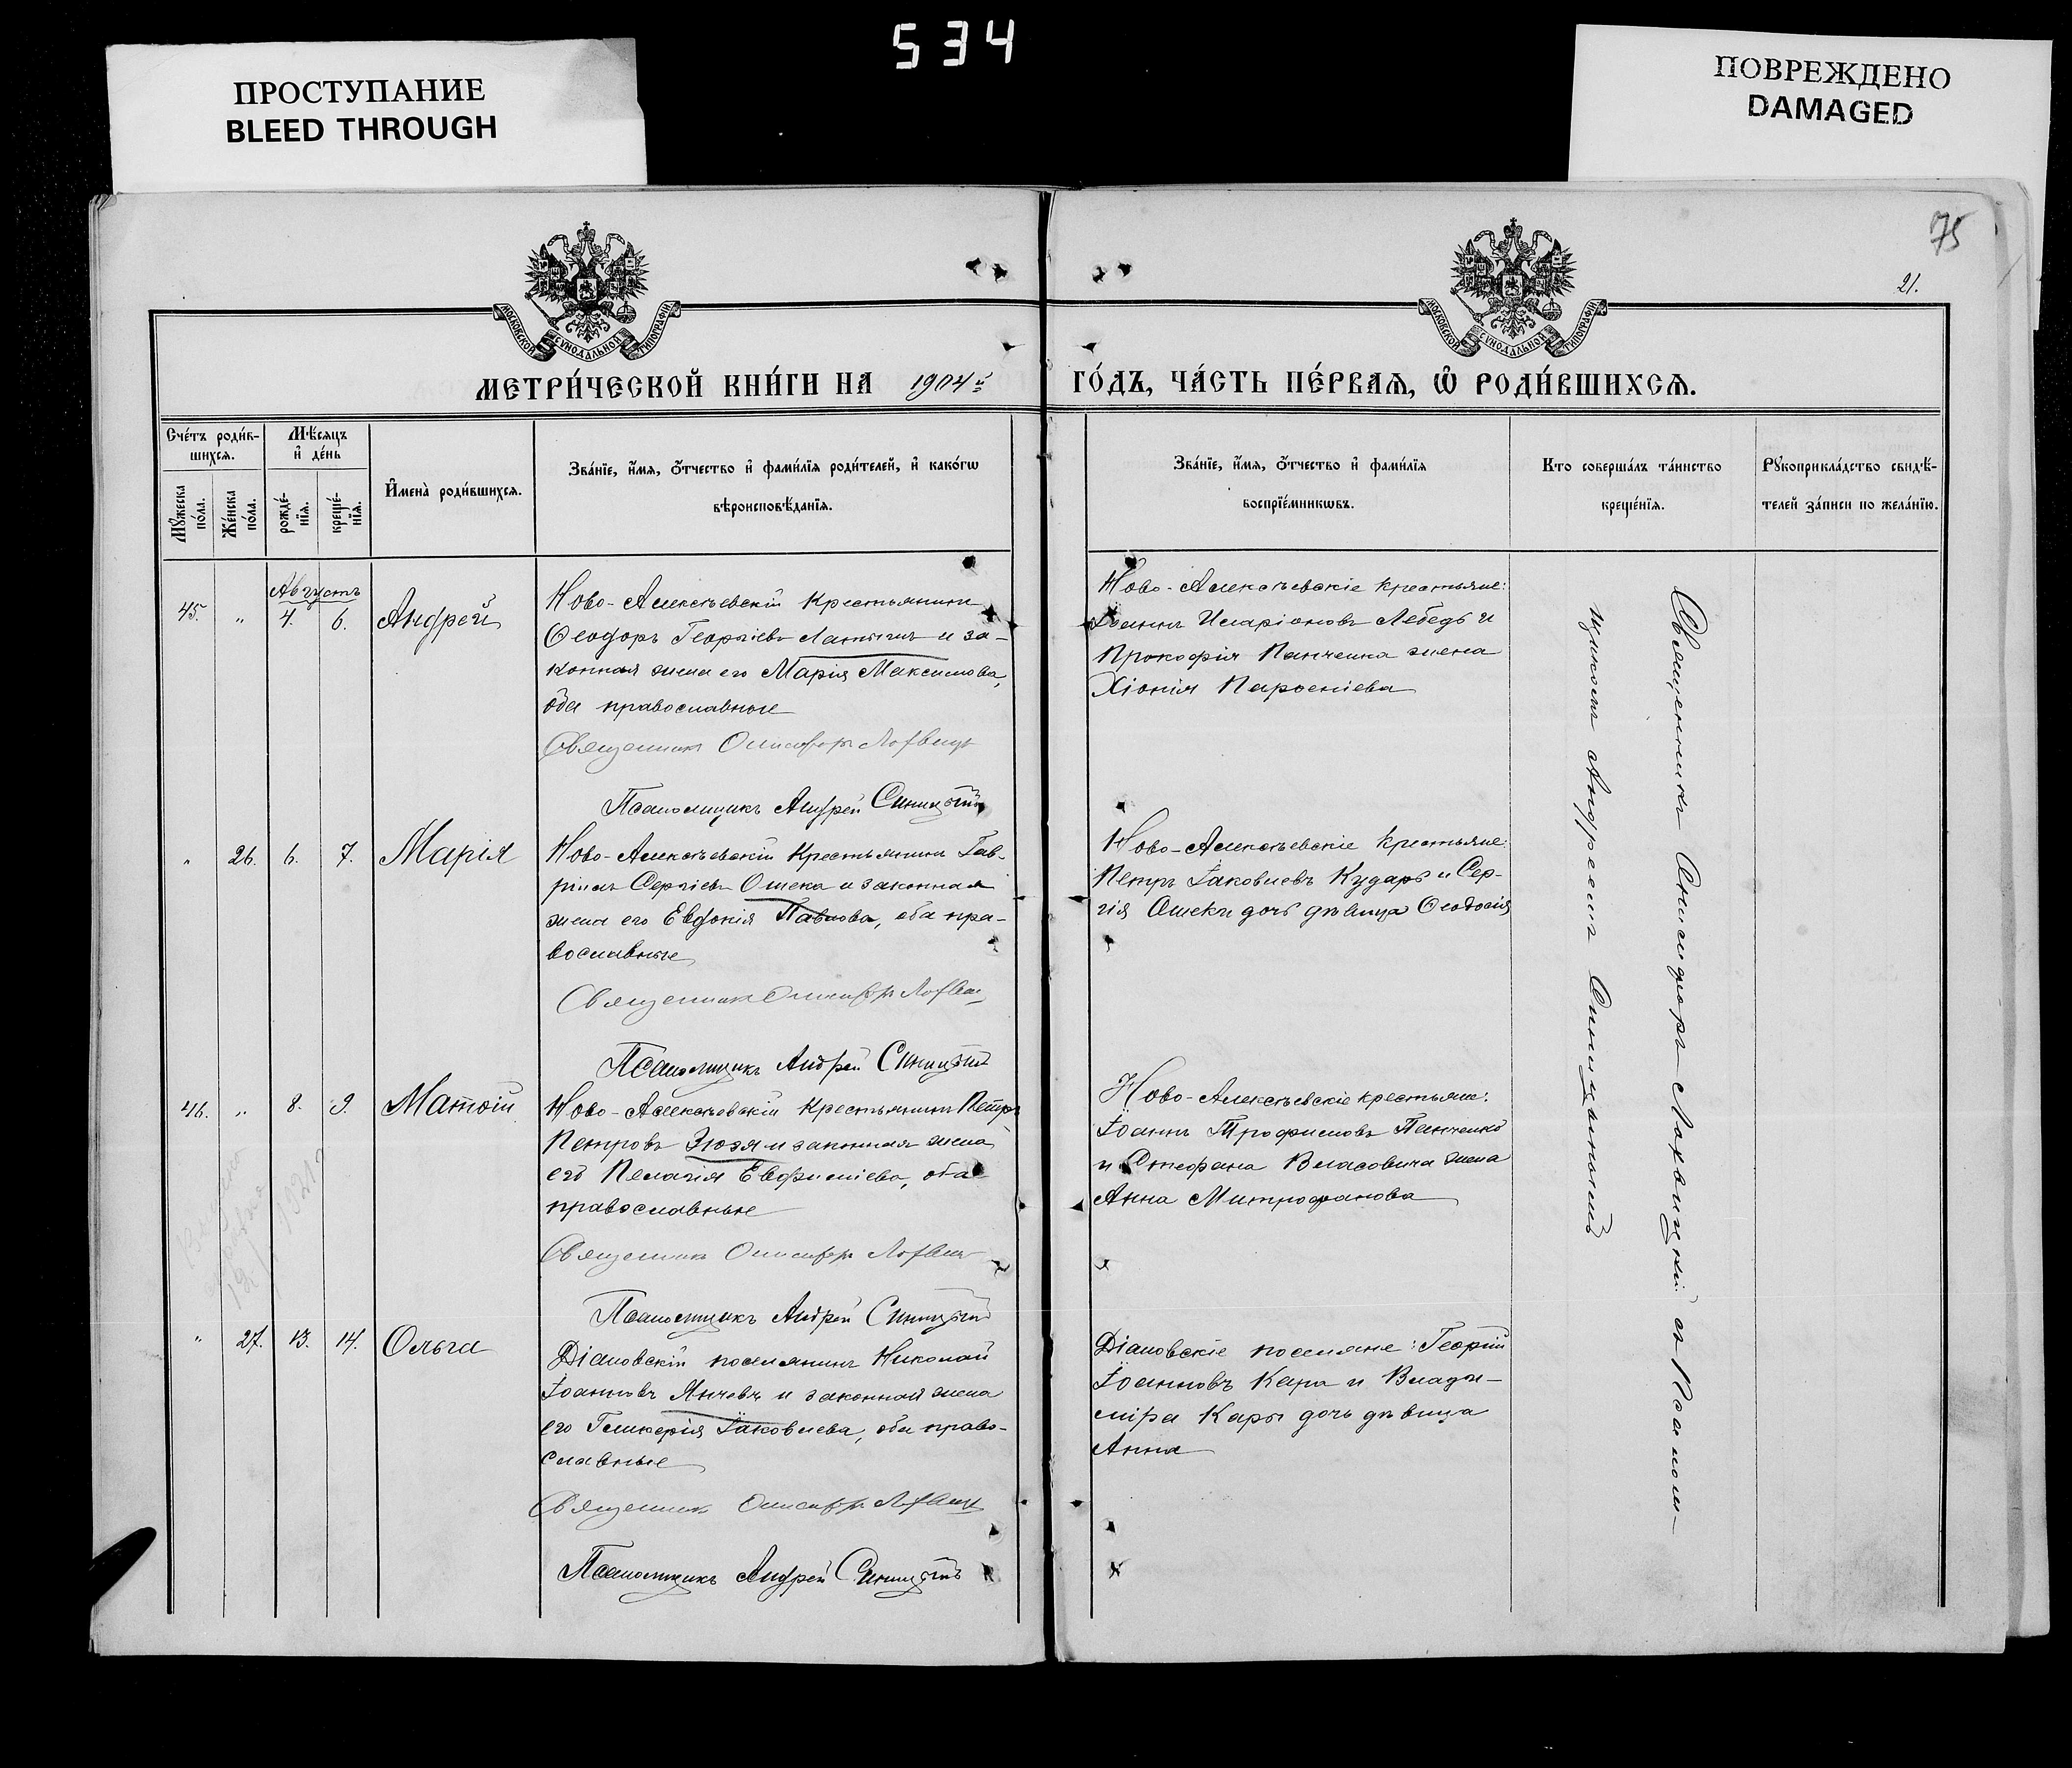 534
ПРОСТУПАНИЕ
BLEED THROUGH
ПОВРЕЖДЕНО
DAMAGED
75
21.
МОСКОВСКОЙ СѴНОДАЛЬНОЙ ТИПОГРАФІИ
МОСКОВСКОЙ СѴНОДАЛЬНОЙ ТИПОГРАФІИ
МЕТРИ́ЧЕСКОЙ КНИ́ГИ НА 1904й ГО́ДЪ, ЧА́СТЬ ПЕ́РВАѦ, Ѡ҆ РОДИ́ВШИХСѦ.
Сче́тъ роди́в-
шихсѧ.
Му́жеска
по́ла.
Же́нска
по́ла.
Мѣ́сѧцъ
и҆ де́нь
рожде́-
нїѧ.
креще́-
нїѧ.
И҆мена̀ роди́вшихсѧ.
Зва́нїе, и҆́мѧ, ѻ҆́тчество и҆ фами́лїѧ роди́телей, и҆ како́гѡ
вѣроисповѣ́данїѧ.
Зва́нїе, и҆́мѧ, ѻ҆́тчество и҆ фами́лїѧ
воспрїе́мникѡвъ.
Кто соверша́лъ та́инство
креще́нїѧ.
Рꙋкоприкла́дство свидѣ́-
телей за́писи по жела́нїю.
Августъ
45. " 4. 6. Андрей
Ново-Алексѣевскій Крестьянинъ
Ѳеодоръ Георгіевъ Латышъ и за-
конная жена его Марія Максимова,
оба православные
Священникъ Онисифоръ
Псаломщикъ Андрей Синицынъ
Ново-Алексѣевскіе крестьяне:
Іоаннъ Иларіоновъ Лебедь и
Прокофія Панченка жена
Хіонія Парѳеніева
" 26. 6. 7. Марія
Ново-Алексѣевскій Крестьянинъ Гав-
ріилъ Сергіевъ Ошека и законная
жена его Евдокія Павлова, оба пра-
вославные
Священникъ Онисифоръ
Псаломщикъ Андрей Синицынъ
Ново-Алексѣевскіе Крестьяне:
Петръ Іаковлевъ Кударь и Сер-
гія Ошеки дочь дѣвица Ѳеодосія
46. " 8. 9. Матѳій
Ново-Алексѣевскій Крестьянинъ Петръ
Петровъ Зюзя и законная жена
его Пелагія Евфиміева, оба
православные
Священникъ Онисифоръ
Псаломщикъ Андрей Синицынъ
Ново-Алексѣевскіе крестьяне:
Іоаннъ Трофимовъ Панченко
и Стефана Власовича жена
Анна Митрофанова
" 27. 13. 14. Ольга
Діановскій поселянинъ Николай
Іоанновъ Янчевъ и законной жена
его Гликерія Іаковлева, оба право-
славные
Священникъ Онисифоръ
Псаломщикъ Андрей Синицынъ
Діановскіе поселяне: Георгій
Іоанновъ Кара и Влади-
міра Кары дочь дѣвица
Анна
Священникъ Онисифоръ Лохвицкій съ Псалом-
щикомъ Андреемъ Синицынымъ